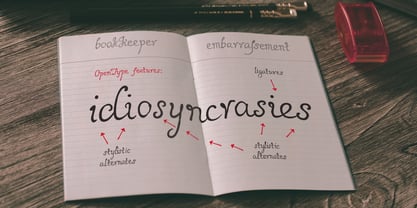 bookkeeper embarraſsment
OpenType features:
ligatures
idiosyncrasies
stylistic
alternates
stylistic
alternates